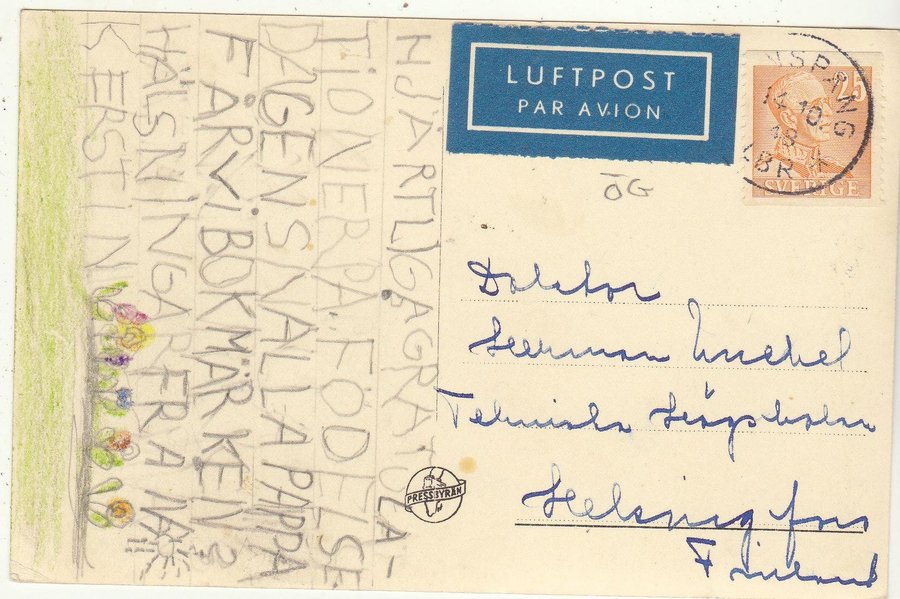 HJÄRTLIGA GRATULA-
TIONER PÅ FÖDELSE-
DAGEN SNÄLLA PAPPA
FÅR VI BOKMÄRKEN?
HÄLSNINGAR
KERSTIN
LUFTPOST
PAR AVION
NSPÅNG
14.10.
48
LBR
25
SVERIGE
ÖG
Doktor
Herman
Tekniska Högskolan
Helsingfors
Finland
PRESSBYRÅN